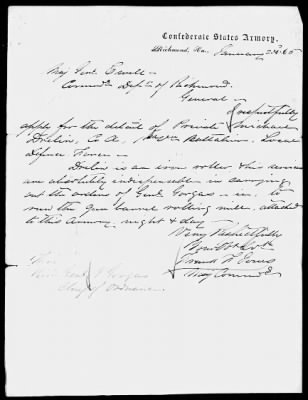 Confederate States Armory.
Richmond, Va., January 2d 65
Maj Genl Ewell
Comdg Dept of Richmond.
General
I respectfully
apply for the detail of Private Michael
Co A, Battalion, Local
Defence Force
is an iron roller & his services
are absolutely indispensable in carrying
out the orders of Genl Gorgas to
run the Gun barrel rolling mill, attached
to this Armory, night & day
Very Respectfully
Your Obt Svt
Frank F. Jones
Maj Comd
Thro
Brig Genl J Gorgas
Chief of Ordnance.